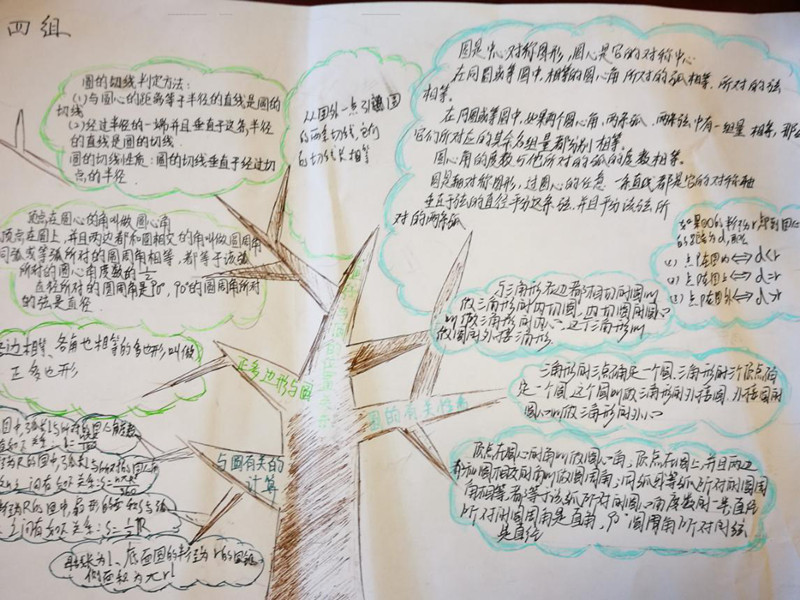 四组
圆的切线判定方法：
(1)与圆心的距离等于半径的直线是圆的
切线
(2)经过半径的一端并且垂直于这条半径
的直线是圆的切线
圆的切线性质：圆的切线垂直于经过切
点的半径
从圆外一点引圆
的两条切线它们
的切线长相等
圆是中心对称图形，圆心是它的对称中心
在同圆或等圆中，相等的圆心角所对的弧相等，所对的弦
相等。
在同圆或等圆中，如果两个圆心角、两条弧、两条弦中有一组量相等，那么
它们所对应的其余各组量都分别相等。
圆心角的度数与他所对的弧的度数相等。
圆是轴对称图形，过圆心的任意一条直线都是它的对称轴
垂直于弦的直径平分这条弦，并且平分该弦所
对的两条弧
顶点在圆心的角叫做圆心角
顶点在圆上，并且两边都和圆相交的角叫做圆周角
同弧或等弧所对的圆周角相等，都等于该弧
所对的圆心角度数的1/2
在径所对的圆周角是90°，90°的圆周角所对
的弦是直径
的距离为d，那么
(1) 点P在圆内⇔d<r
(2) 点P在圆上⇔d=r
(3) 点P在圆外⇔d>r
与三角形各边都相切的圆叫
做三角形的内切圆，内切圆的圆心
叫做三角形的内心，这个三角形叫
做圆的外接三角形
各边相等、各角也相等的多边形叫做
正多边形
正多边形与圆
三角形的三点确定一个圆，三角形的三个顶点确
定一个圆，这个圆叫做三角形的外接圆，外接圆的
圆心叫做三角形的外心
圆的有关性质
与圆有关的
计算
顶点在圆心的角叫做圆心角，顶点在圆上，并且两边
都和圆相交的角叫做圆周角，同弧或等弧所对的圆周
角相等，都等于该弧所对的圆心角度数的一半直径
所对的圆周角是直角，90°圆周角所对的弦
是直径
母线长为l、底面圆的半径为r的圆锥，
侧面积为πrl